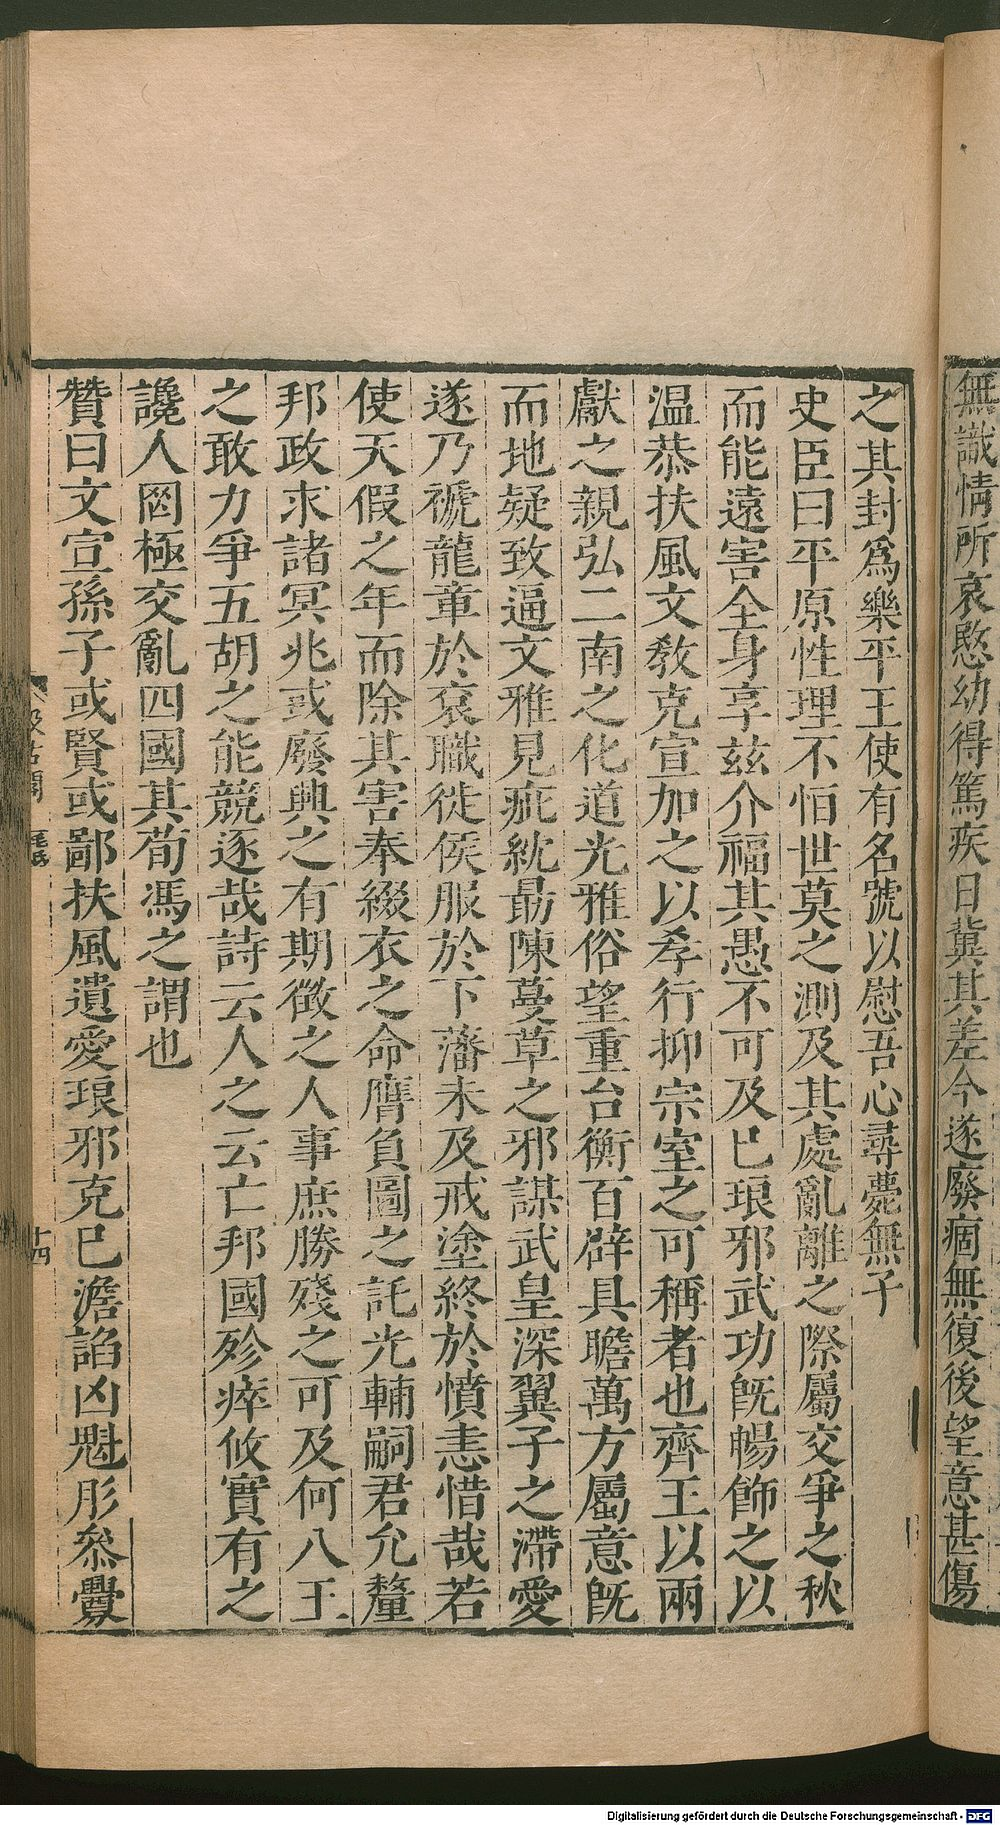 無識情所哀愍幼得篤疾日冀其差今遂廢痼無復後望意甚傷
之其封爲樂平王使有名號以慰吾心尋薨無子
史臣曰平原性理不怕世莫之測及其處亂離之際屬交爭之秋
而能遠害全身享兹介福其愚不可及已琅邪武功旣暢飾之以
温恭扶風文敎克宣加之以孝行抑宗室之可稱者也齊王以兩
獻之親弘二南之化道光雅俗望重台衡百辟具瞻萬方屬意旣
而地疑致逼文雅見疵紞勗陳蔓草之邪謀武皇深翼子之滯愛
遂乃褫龍章於衮職徙侯服於下藩未及戒塗終於憤恚惜哉若
使天假之年而除其害奉綴衣之命膺負圖之託光輔嗣君允釐
邦政求諸冥兆或廢興之有期徵之人事庶勝殘之可及何八王
之敢力爭五胡之能競逐哉詩云人之云亡邦國殄瘁攸實有之
讒人罔極交亂四國其荀馮之謂也
贊曰文宣孫子或賢或鄙扶風遺愛琅邪克已澹諂凶魁肜參釁
十四
Digitalisierung gefördert durch die Deutsche Forschungsgemeinschaft - DFG